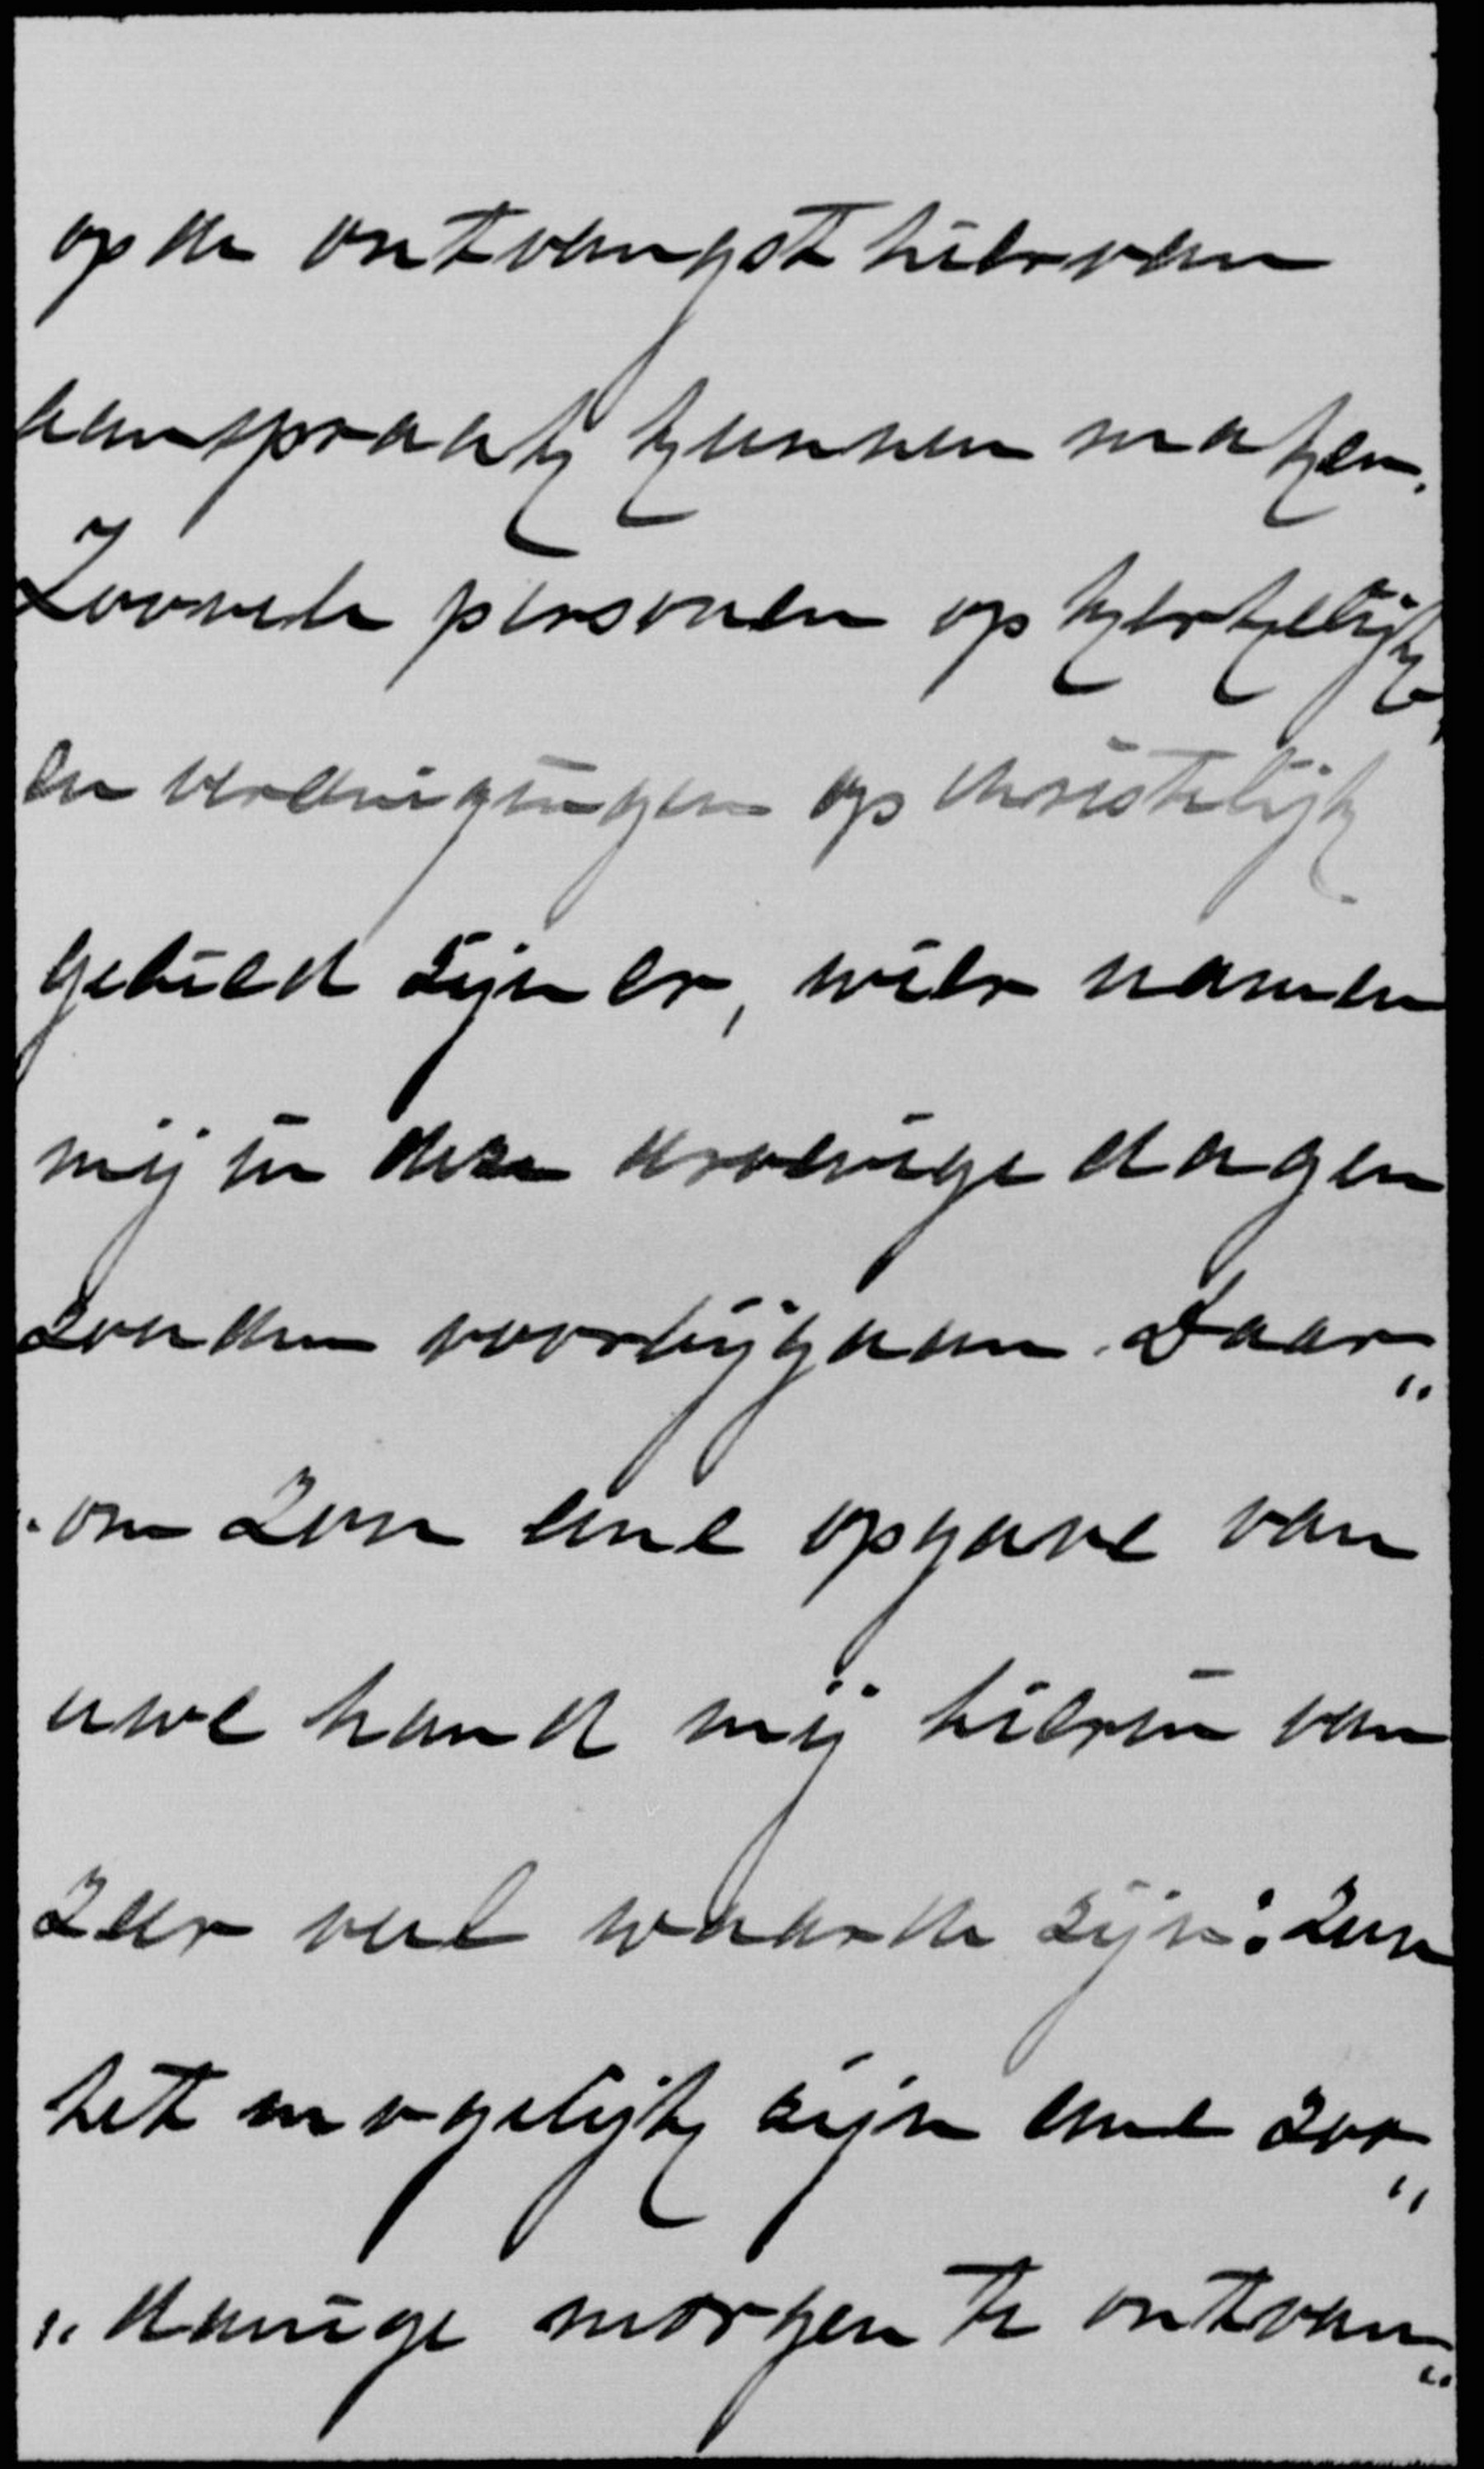 op de ontvangst hiervan
aanspraak kunnen maken.
Zoovele personen op kerkelijk,
en vereenigingen op christelijk
gebied zijn er, wier namen
mij in deze droevige dagen
zouden voorbijgaan. Daar„
.om zou eene opgave van
uwe hand mij hierin van
zeer veel waarde zijn: Zou
het mogelijk zijn eene zoo„
„danige morgen te ontvan„